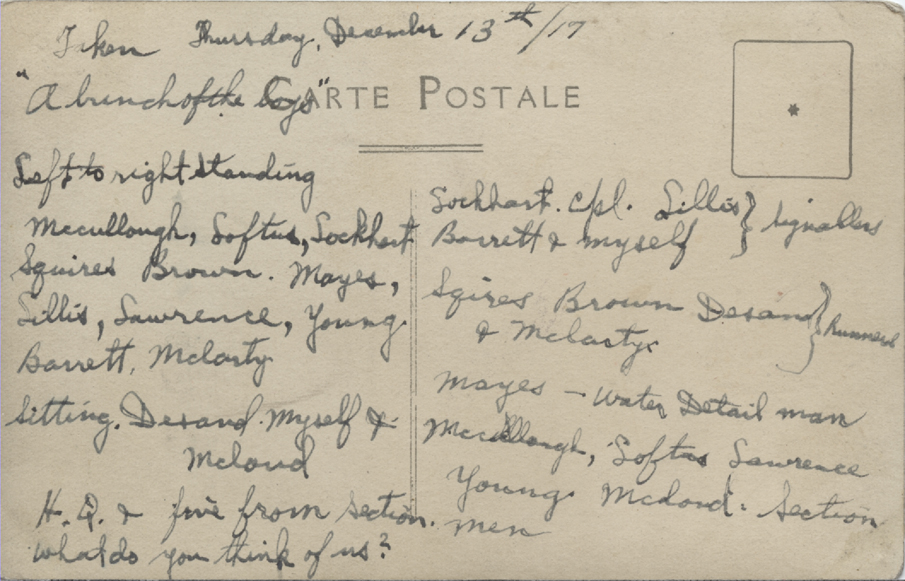 Taken Thursday, December 13th/17
"A bunch of the boys"
CARTE POSTALE
Left to right standing
McCullough, Loftus, Lockhart
Squires Brown. Mayes,
Lillis, Lawrence, Young.
Barrett, McLarty
Sitting. Desand. Myself &
McLoud
H.Q. & five from section.
What do you think of us?
Lockhart. Cpl. Lillis } Signallers
Barrett & myself
Sqires Brown Desand } Runners
& McLarty
Mayes - Water Detail man
McCullough, Loftus Lawrence
Young. McLoud. Section
men